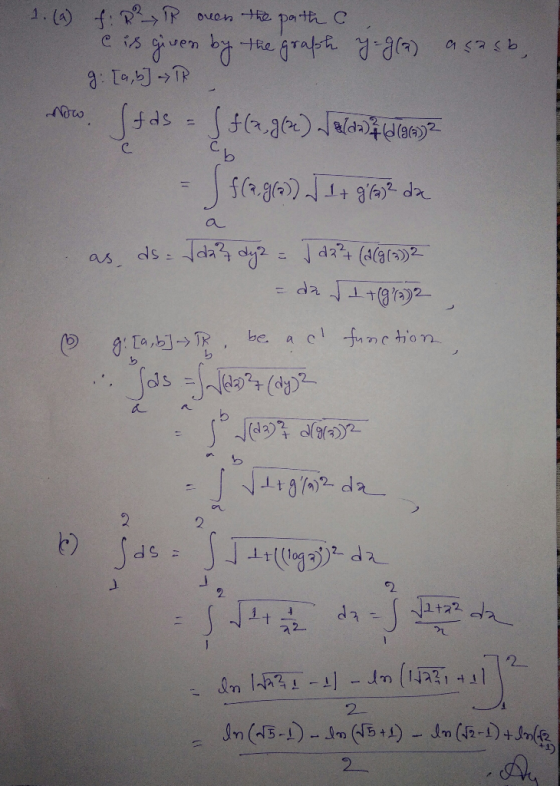 1. (a) f: R² → R over the path C.
C is given by the graph y=g(x) a ≤ x ≤ b,
g: [a,b] → R,
Now. ∫_C f ds = ∫_C f(x, g(x)) √((dx)² + (d(g(x))²
= ∫_a^b f(x, g(x)) √(1 + g'(x)²) dx
as, ds = √(dx² + dy²) = √(dx² + (d(g(x))²)
= dx √(1 + (g'(x))²),
(b) g: [a,b] → R, be a c¹ function,
∴ ∫_a^b ds = ∫_a^b √((dx)² + (dy)²)
= ∫_a^b √((dx)² + d(g(x))²)
= ∫_a^b √(1 + g'(x)²) dx,
(c) ∫_1^2 ds = ∫_1^2 √(1 + ((log x)')²) dx
= ∫_1^2 √(1 + 1/x²) dx = ∫_1^2 √(1+x²)/x dx
= ln |√(x²+1) - 1| - ln (|√(x²+1) + 1|) / 2 ]_1^2
= ln (√5-1) - ln (√5+1) - ln (√2-1) + ln (√2+1) / 2